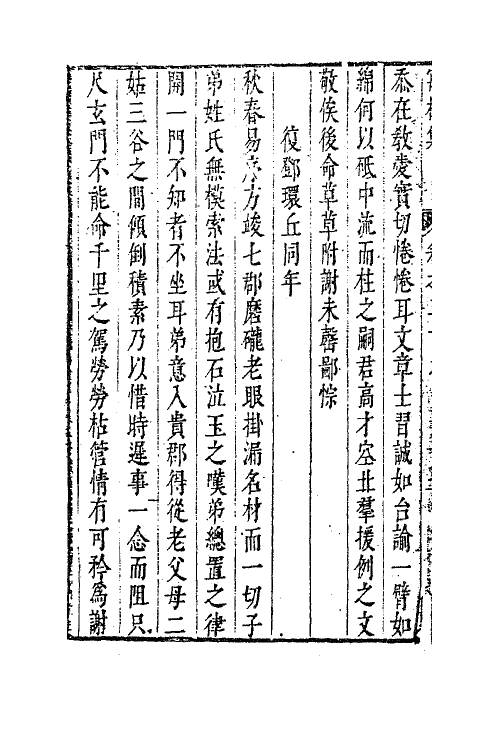 忝在教愛實切惓惓耳文章士習誠如台諭一臂如
綿何以砥中流而柱之嗣君高才空北羣援例之文
敬俟後命草草附謝未罄鄙悰
復鄧環丘同年
秋春易序方竣七郡磨礲老眼掛漏名材而一切子
弟姓氏無摸索法或有抱石泣玉之嘆弟總置之律
開一門不知者不坐耳弟意入貴郡得從老父母二
姑三谷之間傾倒積素乃以惜時遲事一念而阻只
尺玄門不能命千里之駕勞勞枯管情有可矜為謝